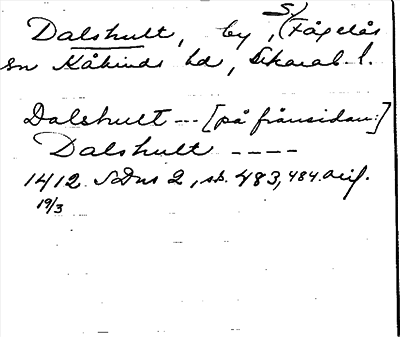 Dalshult, by, S/(Fågelås
sn Kåkinds hd, Skarab. l.
Dalshult --- [på frånsidan:]
Dalshult ----
1412 SDns 2, sd. 483, 484. avs.
19/3